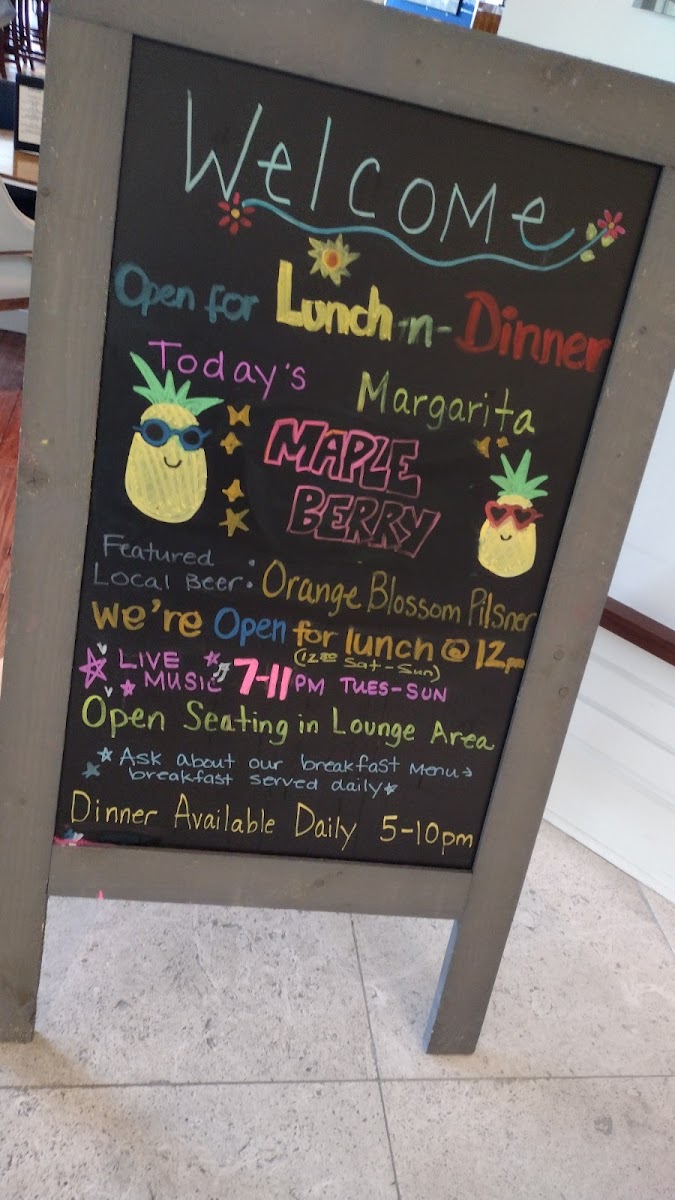 Welcome
Open for Lunch-n-Dinner
Today's Margarita
MAPLE
BERRY
Featured
Local Beer: Orange Blossom Pilsner
We're Open for lunch @ 12pm
(12:00 Sat-Sun)
LIVE
MUSIC 7-11PM TUES-SUN
Open Seating in Lounge Area
Ask about our breakfast Menu→
breakfast served daily
Dinner Available Daily 5-10pm